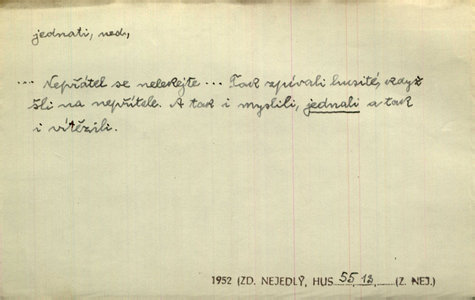 jednati, ned.,
... Nepřátel se nelekejte ... Tak zpívali husité, když
šli na nepřítele. A tak i myslili, jednali a tak
i vítězili.
1952 (ZD. NEJEDLÝ, HUS 55, 13, (Z. NEJ.)